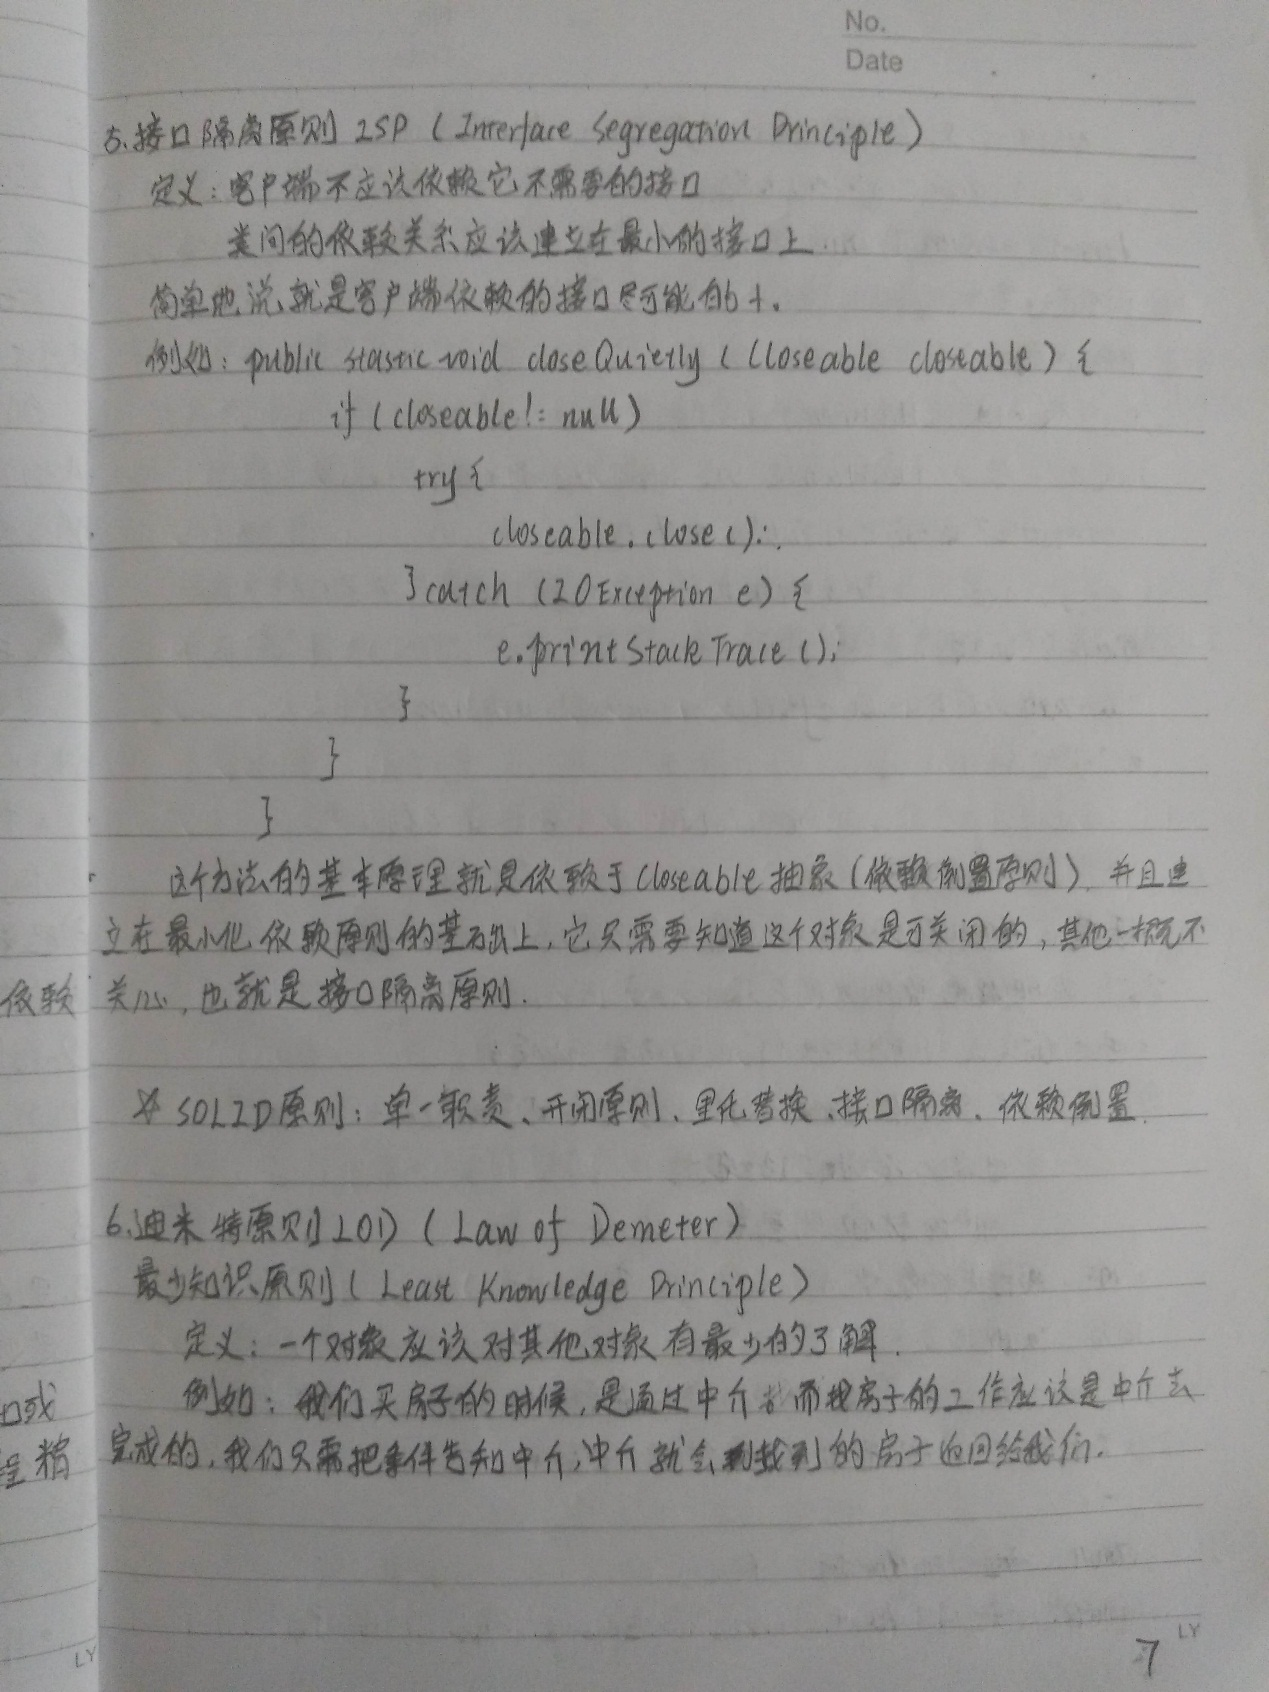 No.
Date
5.接口隔离原则 ISP (Interface Segregation Principle)
定义:客户端不应该依赖它不需要的接口
类间的依赖关系应该建立在最小的接口上
简单地说,就是客户端依赖的接口尽可能的小.
例如: public stastic void closeQuietly (Closeable closeable) {
if (closeable != null)
try {
closeable.close();
} catch (IOException e) {
e.printStackTrace();
}
}
}
这个方法的基本原理就是依赖于Closeable抽象(依赖倒置原则),并且建
立在最小化依赖原则的基础上,它只需要知道这个对象是可关闭的,其他一概不
依赖
关心,也就是接口隔离原则.
☆ SOLID原则: 单一职责、开闭原则、里氏替换、接口隔离、依赖倒置.
6.迪米特原则LOD (Law of Demeter)
最少知识原则(Least Knowledge Principle)
定义:一个对象应该对其他对象有最少的了解.
例如:我们买房子的时候,是通过中介,而找房子的工作应该是中介去
口或
完成的,我们只需把条件告知中介,中介就会找到的房子返回给我们.
程稍
LY
LY
7